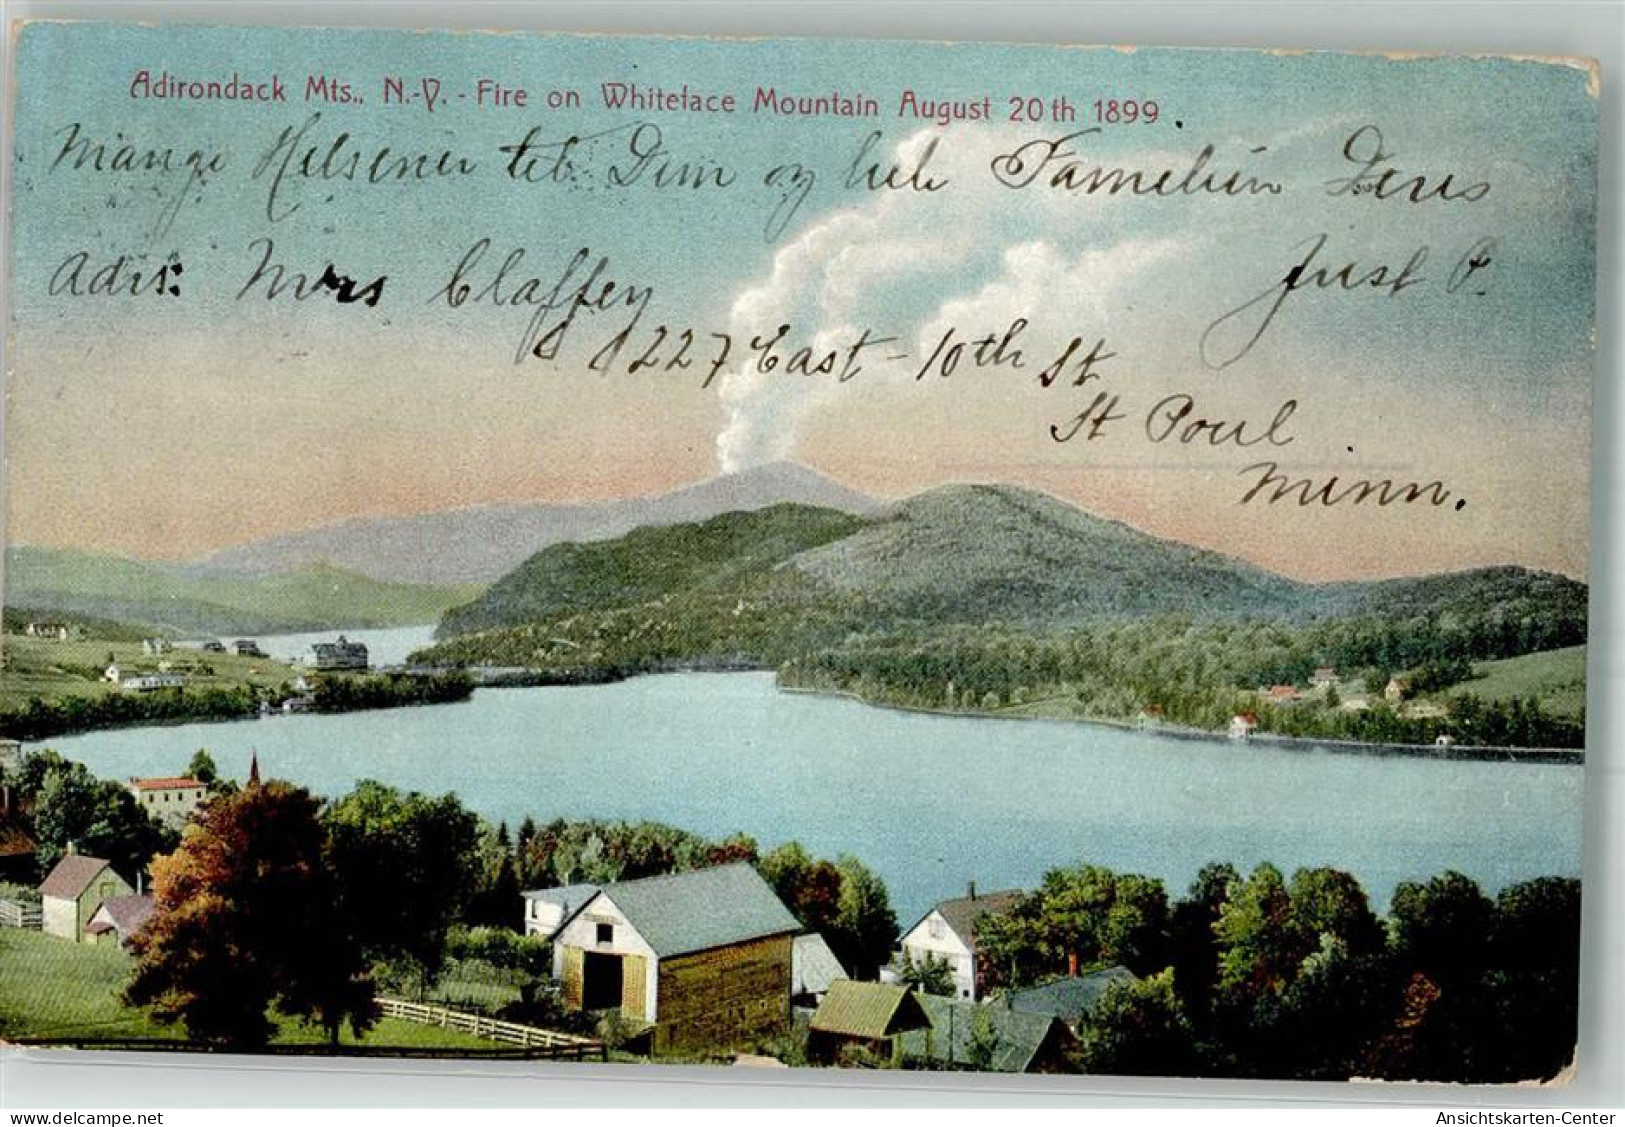 Adirondack Mts., N.-Y. - Fire on Whiteface Mountain August 20th 1899.
Mange Helsener tel Dem og hele Famelien Deres
Adrs: Mrs Claffey Just P.
1227 East - 10th St
St Poul
Minn.
www.delcampe.net
Ansichtskarten-Center